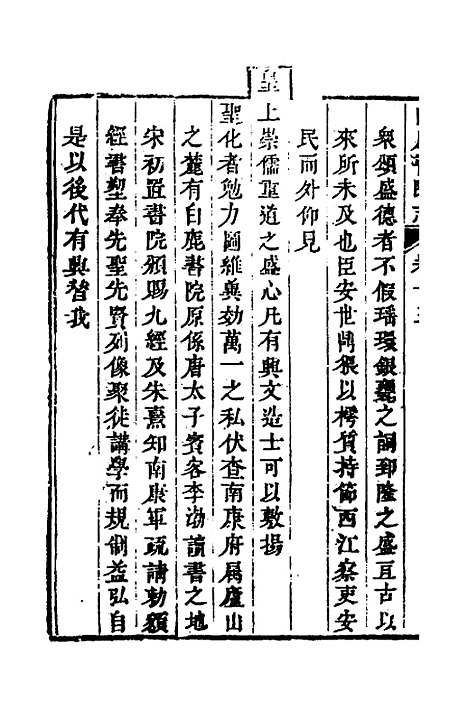 衆頌盛德者不假瑶環銀甕之調郅隆之盛亘古以
來所未及也臣安世鼎猥以樗質持節西江察吏安
民而外仰見
皇上崇儒重道之盛心凡有興文造士可以敷揚
聖化者勉力圖維與効萬一之私伏查南康府屬廬山
之麓有白鹿書院原係唐太子賓客李渤讀書之地
宋初置書院頒賜九經及朱熹知南康軍疏請勅額
經書塑奉先聖先賢列像聚徒講學而規制益弘自
是以後代有興替我